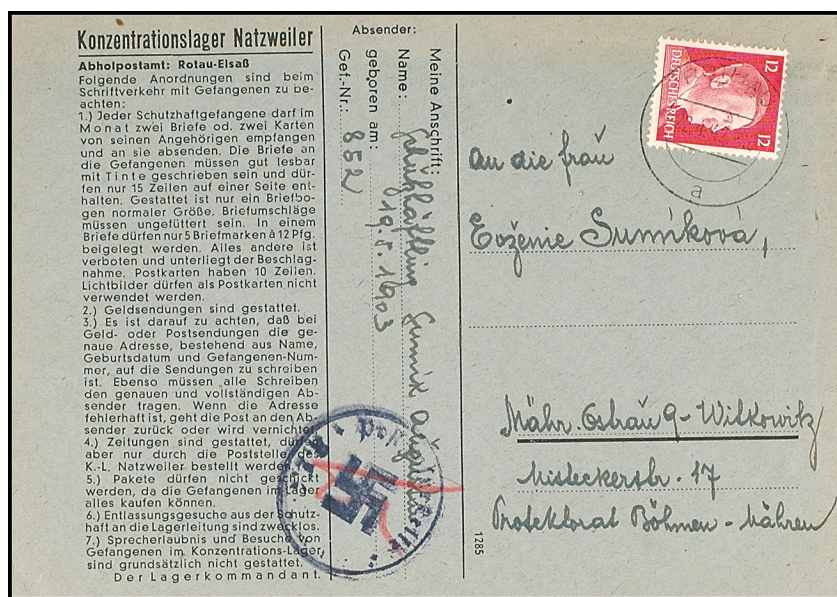 Konzentrationslager Natzweiler
Abholpostamt: Rotau-Elsaß
Folgende Anordnungen sind beim
Schriftverkehr mit Gefangenen zu be-
achten:
1.) Jeder Schutzhaftgefangene darf im
Monat zwei Briefe od. zwei Karten
von seinen Angehörigen empfangen
und an sie absenden. Die Briefe an
die Gefangenen müssen gut lesbar
mit Tinte geschrieben sein und dür-
fen nur 15 Zeilen auf einer Seite ent-
halten. Gestattet ist nur ein Briefbo-
gen normaler Größe. Briefumschläge
müssen ungefüttert sein. In einem
Briefe dürfen nur 5 Briefmarken à 12 Pfg.
beigelegt werden. Alles andere ist
verboten und unterliegt der Beschlag-
nahme. Postkarten haben 10 Zeilen.
Lichtbilder dürfen als Postkarten nicht
verwendet werden.
2.) Geldsendungen sind gestattet.
3.) Es ist darauf zu achten, daß bei
Geld- oder Postsendungen die ge-
naue Adresse, bestehend aus Name,
Geburtsdatum und Gefangenen-Num-
mer, auf die Sendungen zu schreiben
ist. Ebenso müssen alle Schreiben
den genauen und vollständigen Ab-
sender tragen. Wenn die Adresse
fehlerhaft ist, geht die Post an den Ab-
sender zurück oder wird vernichtet.
4.) Zeitungen sind gestattet, dürfen
aber nur durch die Poststelle des
K.-L. Natzweiler bestellt werden.
5.) Pakete dürfen nicht geschickt
werden, da die Gefangenen im Lager
alles kaufen können.
6.) Entlassungsgesuche aus der Schutz-
haft an die Lagerleitung sind zwecklos.
7.) Sprecherlaubnis und Besuche von
Gefangenen im Konzentrations-Lager
sind grundsätzlich nicht gestattet.
Der Lagerkommandant.
Absender:
Meine Anschrift:
Name: Schutzhäftling Sumík Augustin
geboren am: 19.5.1903
Gef.-Nr.: 852
DEUTSCHES REICH
12 12
a
An die Frau
Evženie Sumíková,
Mähr. Ostrau 9 - Witkowitz
Misteckerstr. 17
Protektorat Böhmen - Mähren
1285